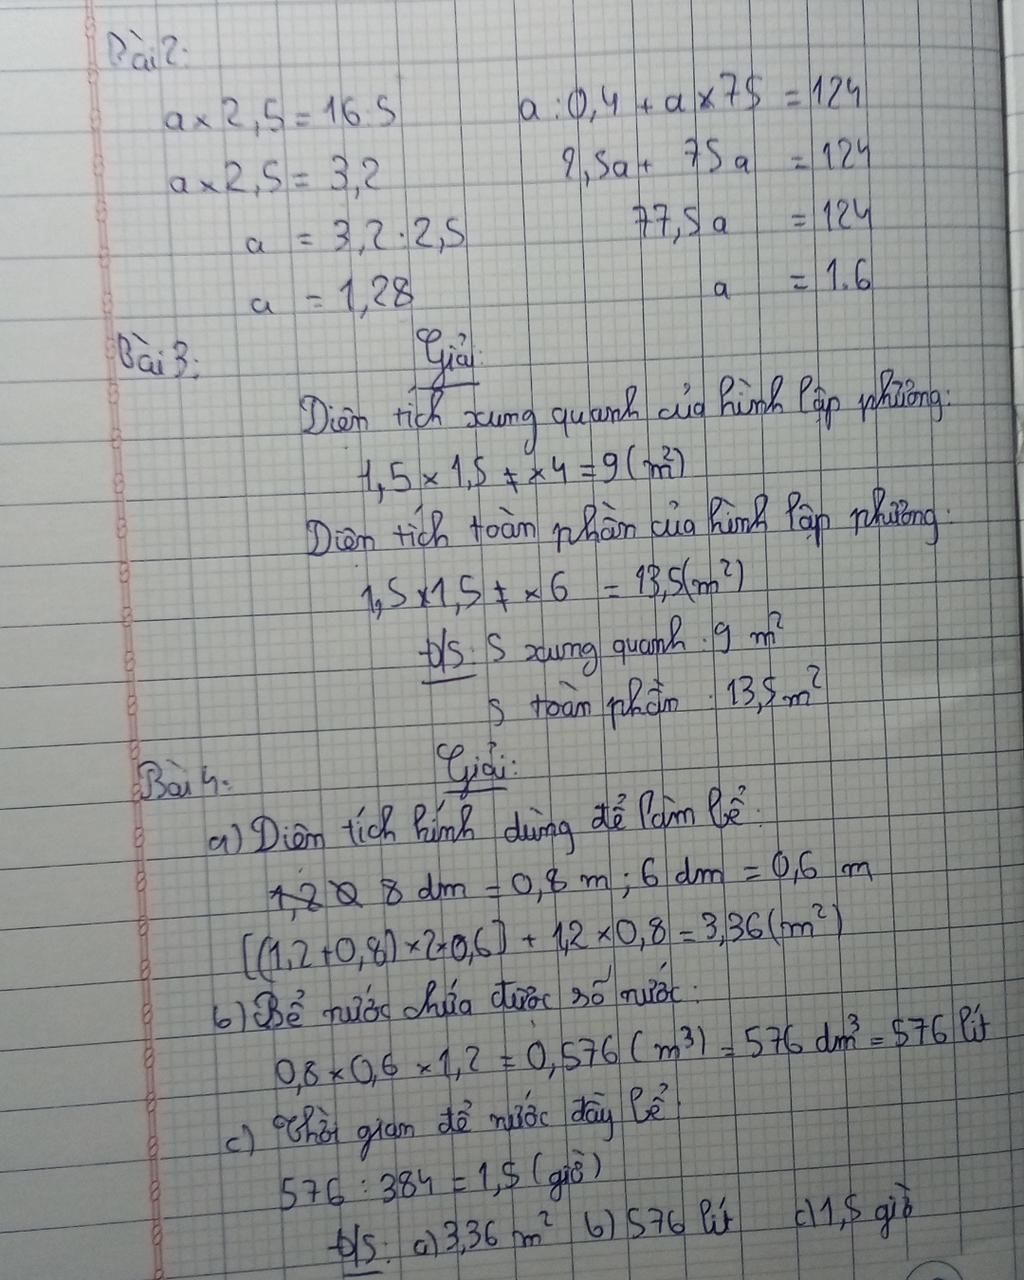 Bài 2:
a × 2,5 = 16:5
a × 2,5 = 3,2
a = 3,2 : 2,5
a = 1,28
a : 0,4 + a × 75 = 124
2,5a + 75a = 124
77,5a = 124
a = 1.6
Bài 3: Giải:
Diện tích xung quanh của hình lập phương:
1,5 × 1,5 × 4 = 9 (m²)
Diện tích toàn phần của hình lập phương:
1,5 × 1,5 × 6 = 13,5 (m²)
Đ/S: S xung quanh : 9 m²
S toàn phần : 13,5 m²
Bài 4: Giải:
a) Diện tích kính dùng để làm bể:
8 dm = 0,8 m ; 6 dm = 0,6 m
[(1,2 + 0,8) × 2 × 0,6] + 1,2 × 0,8 = 3,36 (m²)
b) Bể nước chứa được số nước:
0,8 × 0,6 × 1,2 = 0,576 (m³) = 576 dm³ = 576 lít
c) Thời gian để nước đầy bể:
576 : 384 = 1,5 (giờ)
Đ/S: a) 3,36 m² b) 576 lít c) 1,5 giờ